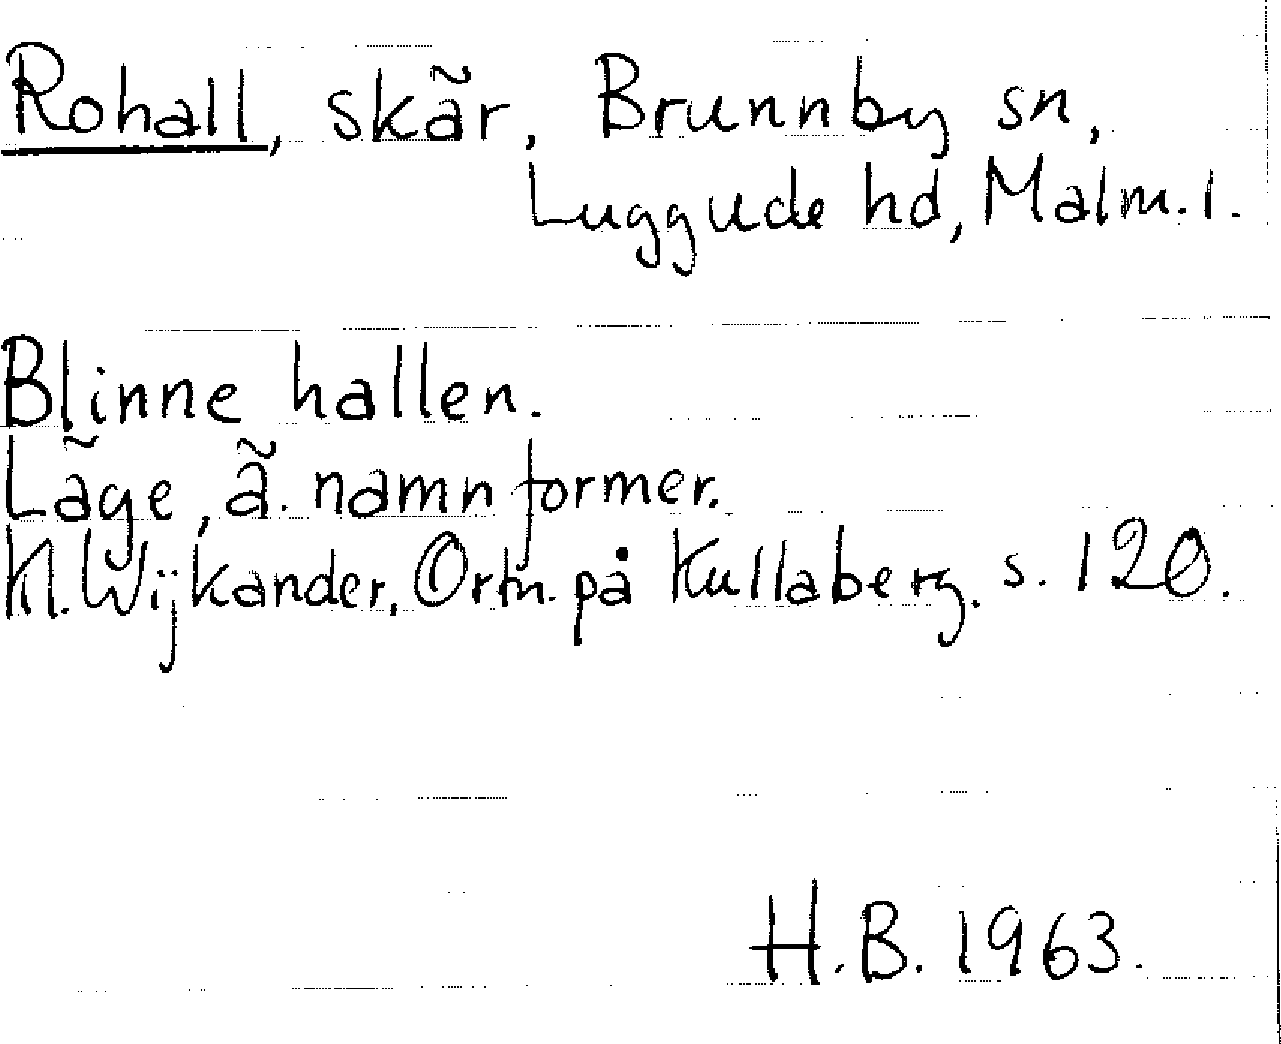 Rohall, skär, Brunnby sn,
Luggude hd, Malm. l.
Blinne hallen.
Läge, ä. namnformer.
Kl. Wijkander, Ortn. på Kullaberg. s. 120.
H.B. 1963.